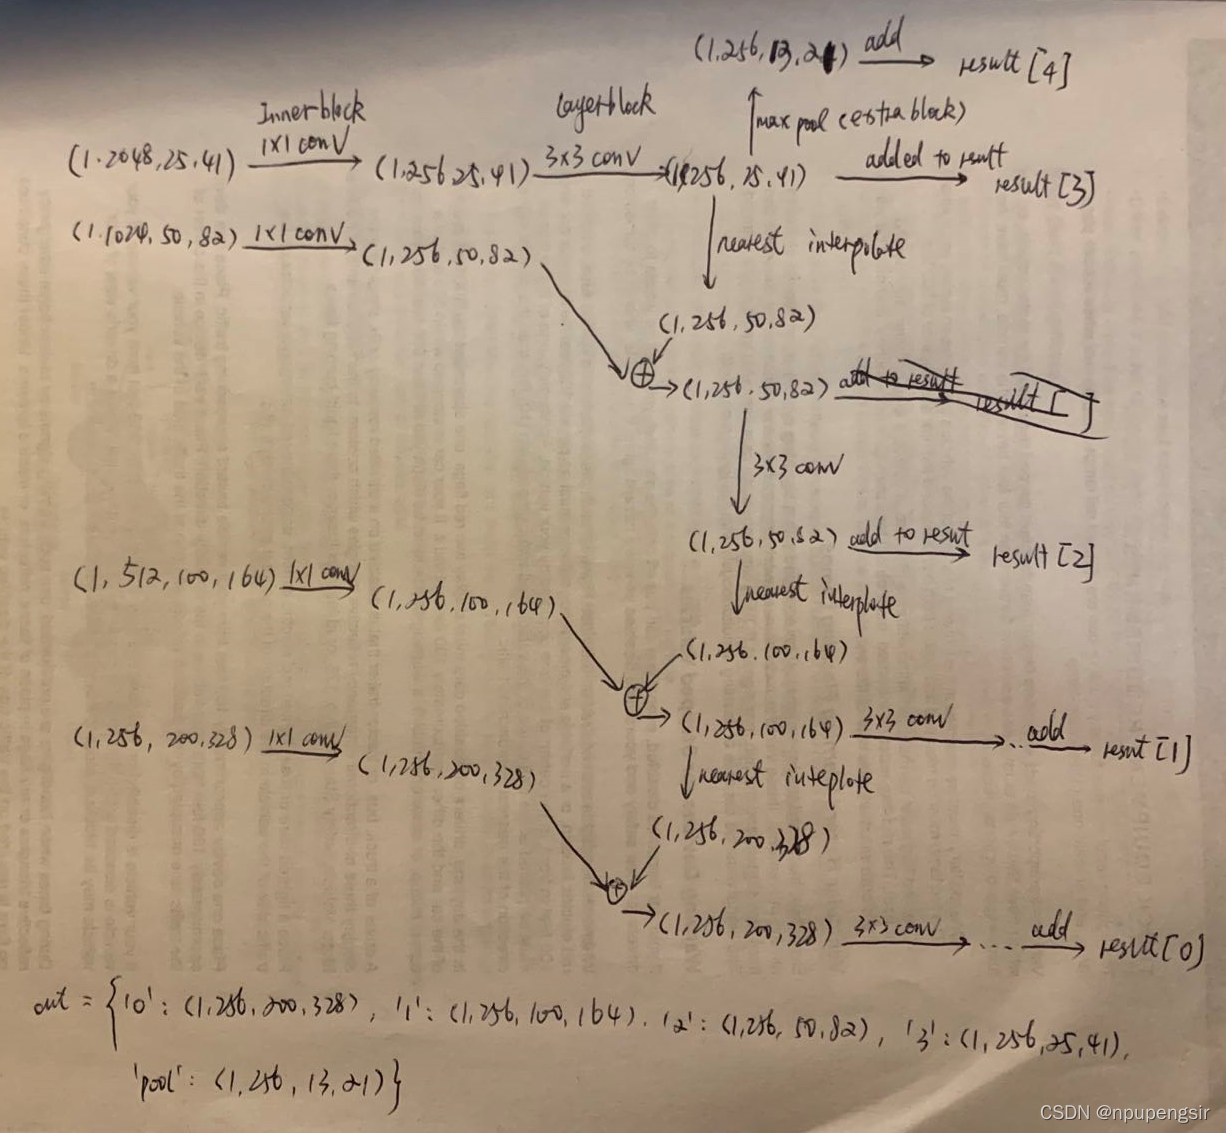 (1,256,13,21) add result [4]
Innerblock Layerblock max pool (extra block)
(1.2048,25,41) 1x1 conv (1,256 25,41) 3x3 conv (1,256,25,41) added to result result [3]
(1.1024,50,82) 1x1 conv (1,256,50,82) nearest interpolate
(1,256,50,82)
⊕ (1,256.50,82) add to result result [ ]
3x3 conv
(1,256,50,82) add to resut result [2]
(1,512,100,164) 1x1 conv (1,256,100,164) nearest interplate
(1,256.100,164)
⊕ (1,256,100,164) 3x3 conv ... add resut [1]
(1,256,200,328) 1x1 conv (1,256,200,328) nearest inteplate
(1,256,200.328)
⊕ (1,256,200,328) 3x3 conv .... add result [0]
out = {'0': (1,256,200,328), '1': (1,256,100,164). '2': (1,256,50,82), '3': (1,256,25,41),
'pool': (1,256,13,21)}
CSDN @npupengsir